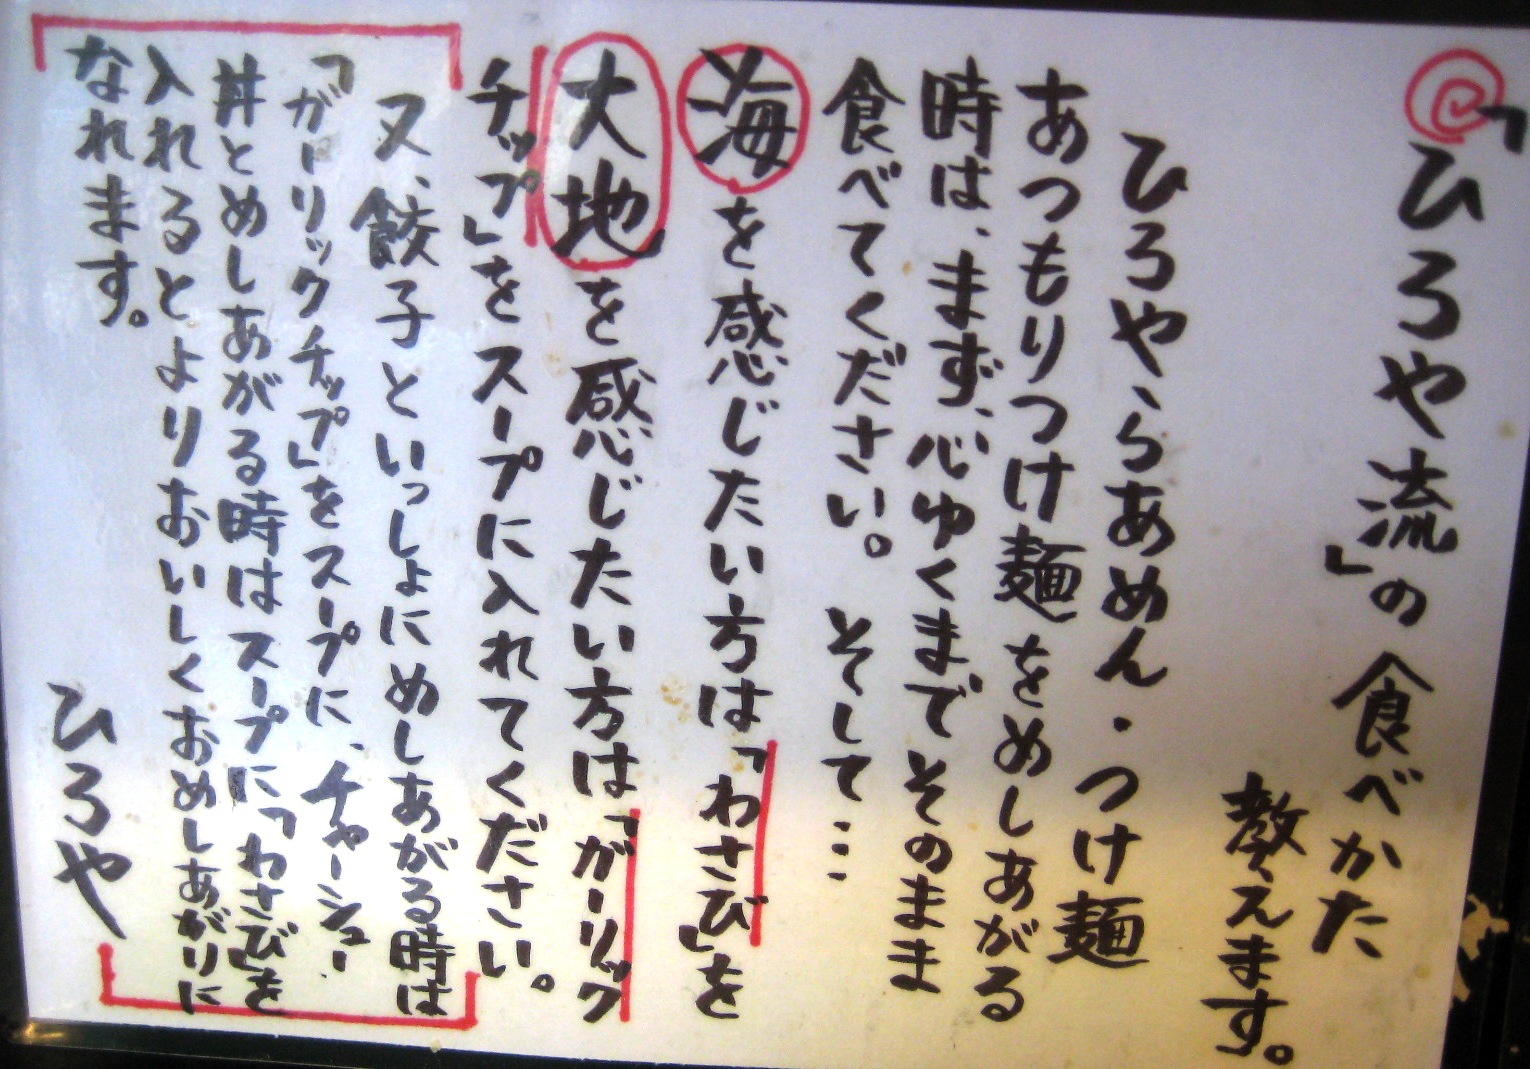 「ひろや流」の食べかた
教えます。
ひろや、らあめん・つけ麺
あつもりつけ麺をめしあがる
時は、まず、心ゆくまでそのまま
食べてください。そして…
海を感じたい方は「わさび」を
大地を感じたい方は「ガーリック
チップ」をスープに入れてください。
又、餃子といっしょにめしあがる時は
「ガーリックチップ」をスープに、チャーシュー
丼とめしあがる時はスープに「わさび」を
入れるとよりおいしくおめしあがりに
なれます。
ひろや